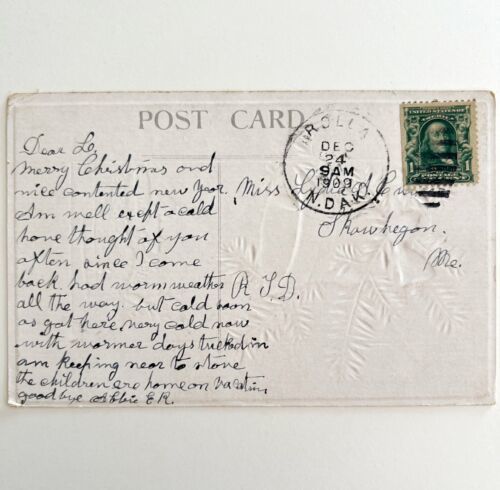 POST CARD
ROLLA
DEC
24
9AM
1909
N.DAK.
UNITED STATES OF
POSTAGE
Dear L,
Merry Christmas and
nice contented new Year.
I am well except a cold
have thought of you
often since I come
back. had warm weather
all the way. but cold soon
as got here very cold now
with warmer days tucked in
am keeping near to stove
the children are home on vacation
good bye Abbie E R.
Miss
Skowhegan.
Me.
R. F. D.